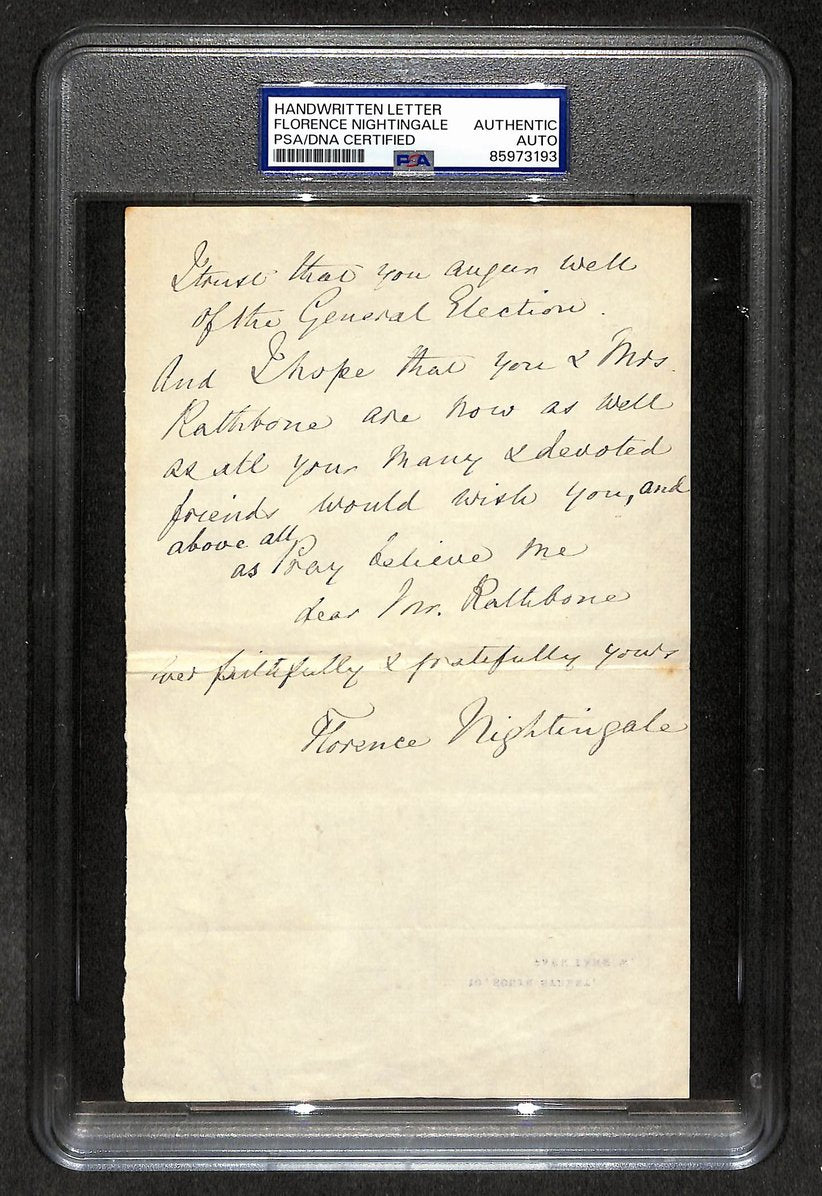 HANDWRITTEN LETTER
FLORENCE NIGHTINGALE
PSA/DNA CERTIFIED
PSA
AUTHENTIC
AUTO
85973193
I trust that you augur well
of the General Election.
And I hope that you & Mrs
Rathbone are now as well
as all your many & devoted
friends would wish you, and
above all
as Pray believe me
dear Mr. Rathbone
ever faithfully & gratefully yours
Florence Nightingale